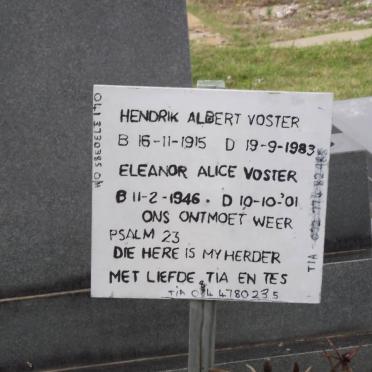 HENDRIK ALBERT VOSTER
B 16-11-1915 D 19-9-1983
ELEANOR ALICE VOSTER
B 11-2-1946 . D 10-10-'01
ONS ONTMOET WEER
PSALM 23
DIE HERE IS MY HERDER
MET LIEFDE, TIA EN TES